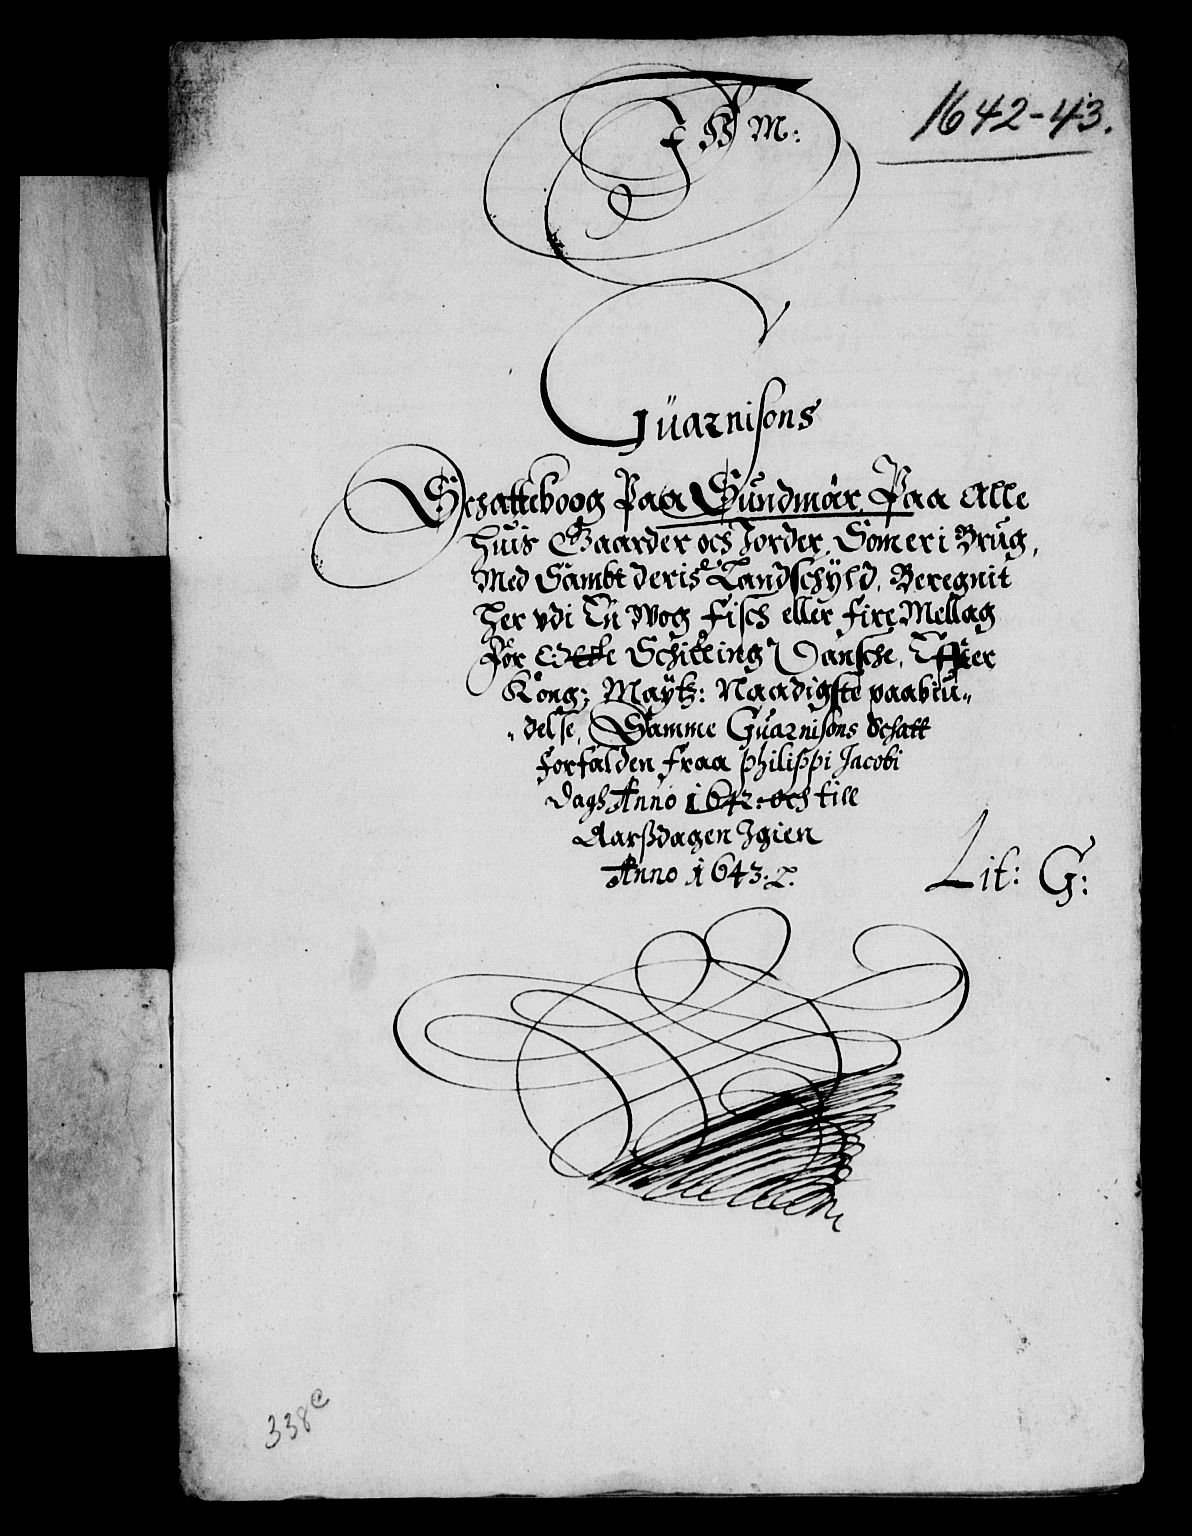 1642-43.
J H M:
Guarnisons
Schatteboog Paa Sundmør, Paa Alle
huis Gaarder och Jorder, Som er i Brug,
Med Sambt deris Landschÿld, Beregnit
her vdi Tu Wog Fisch eller fire Mellag
För Schilling Dansche, Effter
Kong: Maÿtz: Naadigste paabiu„
„delse, Samme Guarnisons Schatt
forfalden fraa Philippi Jacobi
dags Anno 1642: och till
Aarßdagen Igien
Anno 1643:
Lit: G:
338e